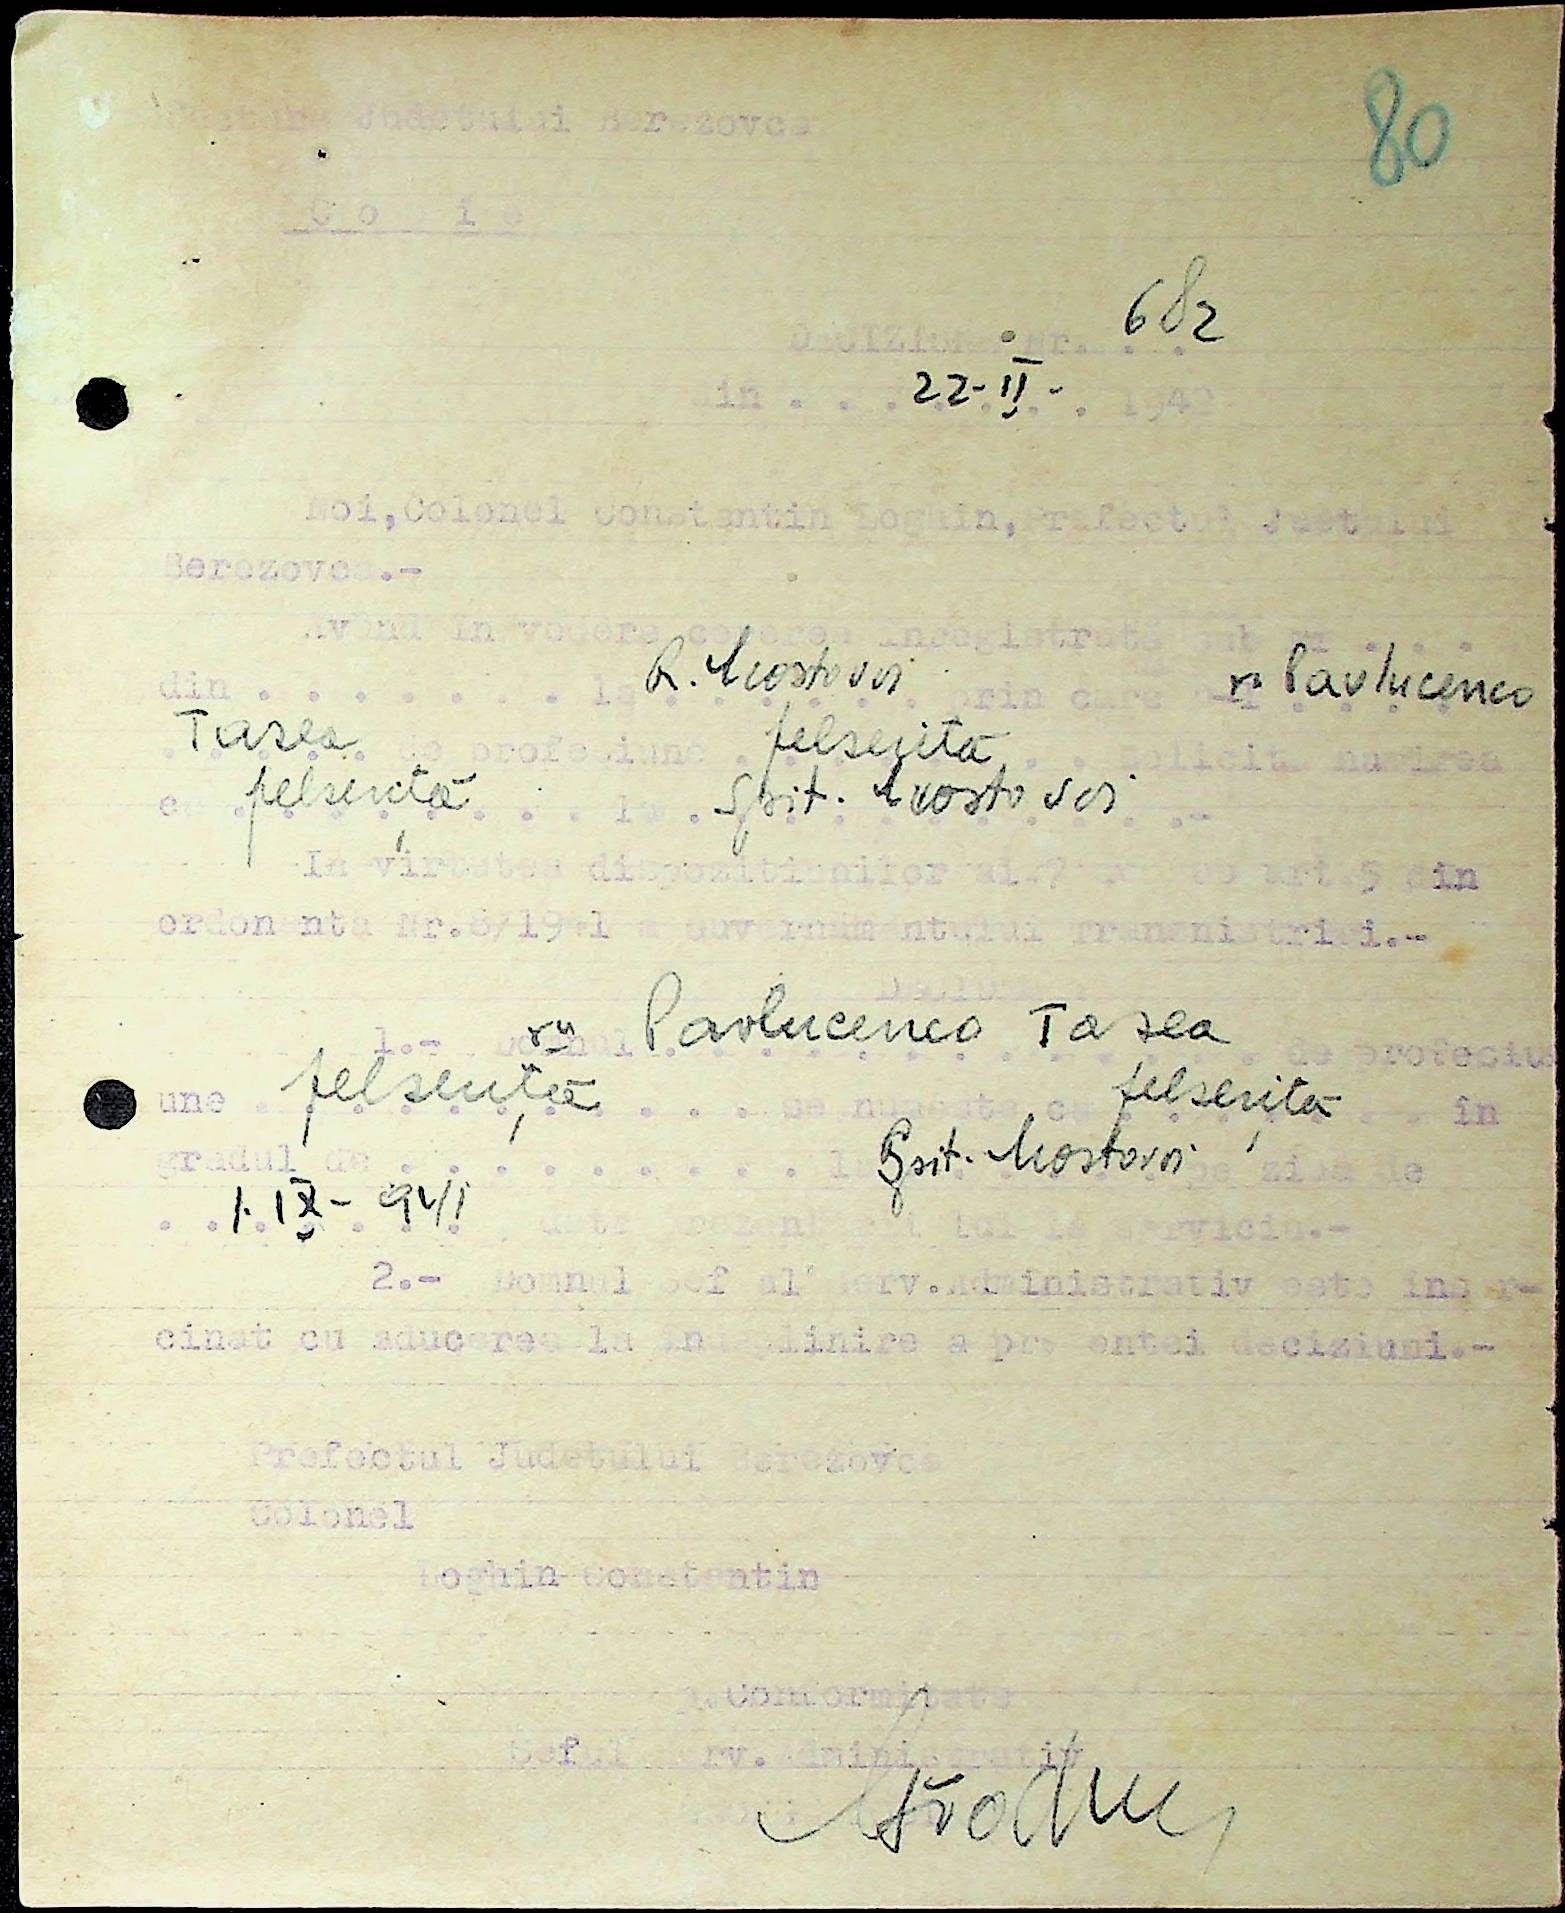 80
Prefectura Judetului Berezovca
C o p i e
DECIZIUNEA Nr. 682
din 22-II- 1942
Noi, Colonel Constantin Loghin, Prefectul Judetului
Berezovca.-
Avand in vedere cererea inregistrata sub Nr . . .
din . . . . . . . la R. Mostovoi prin care Pavlucenco
Tasea de profesiune felseriţă solicita numirea
ca felseriţă la Spit. Mostovoi .-
In virtutea dispozitiunilor art.5 din
ordonanta Nr.8/1941 a Guvernamentului Transnistriei.-
Decidem
1.- Domnul Pavlucenco Tasea de profesiu
une felseriţă se numeste ca felseriţă in
gradul de . . . . . . . . . la Spit. Mostovoi pe ziua de
1.IX-941 data la serviciu.-
2.- Domnul Sef al Serv.Administrativ este insar-
cinat cu aducerea la indeplinire a prezentei deciziuni.-
Prefectul Judetului Berezovca
Colonel
Loghin Constantin
p.Conformitate
Seful Serv.Administrativ